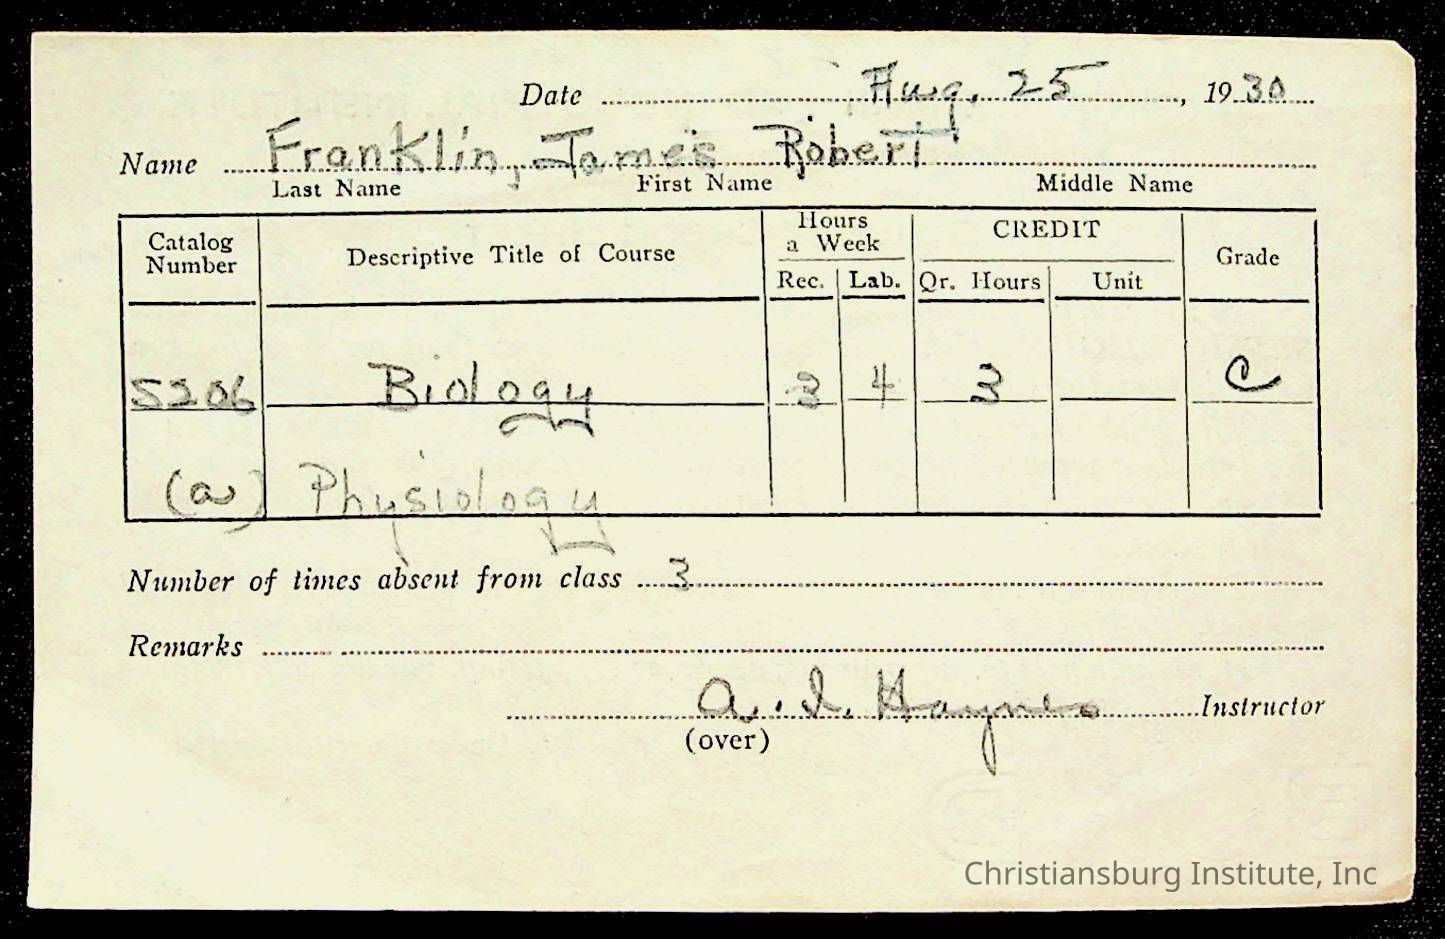 Date Aug. 25, 1930
Name Franklin, James Robert
Last Name First Name Middle Name
Catalog Number Descriptive Title of Course Hours a Week Rec. Lab. CREDIT Qr. Hours Unit Grade
S206 Biology 3 4 3 C
(a) Physiology
Number of times absent from class 3
Remarks
A. I. Haynes Instructor
(over)
Christiansburg Institute, Inc